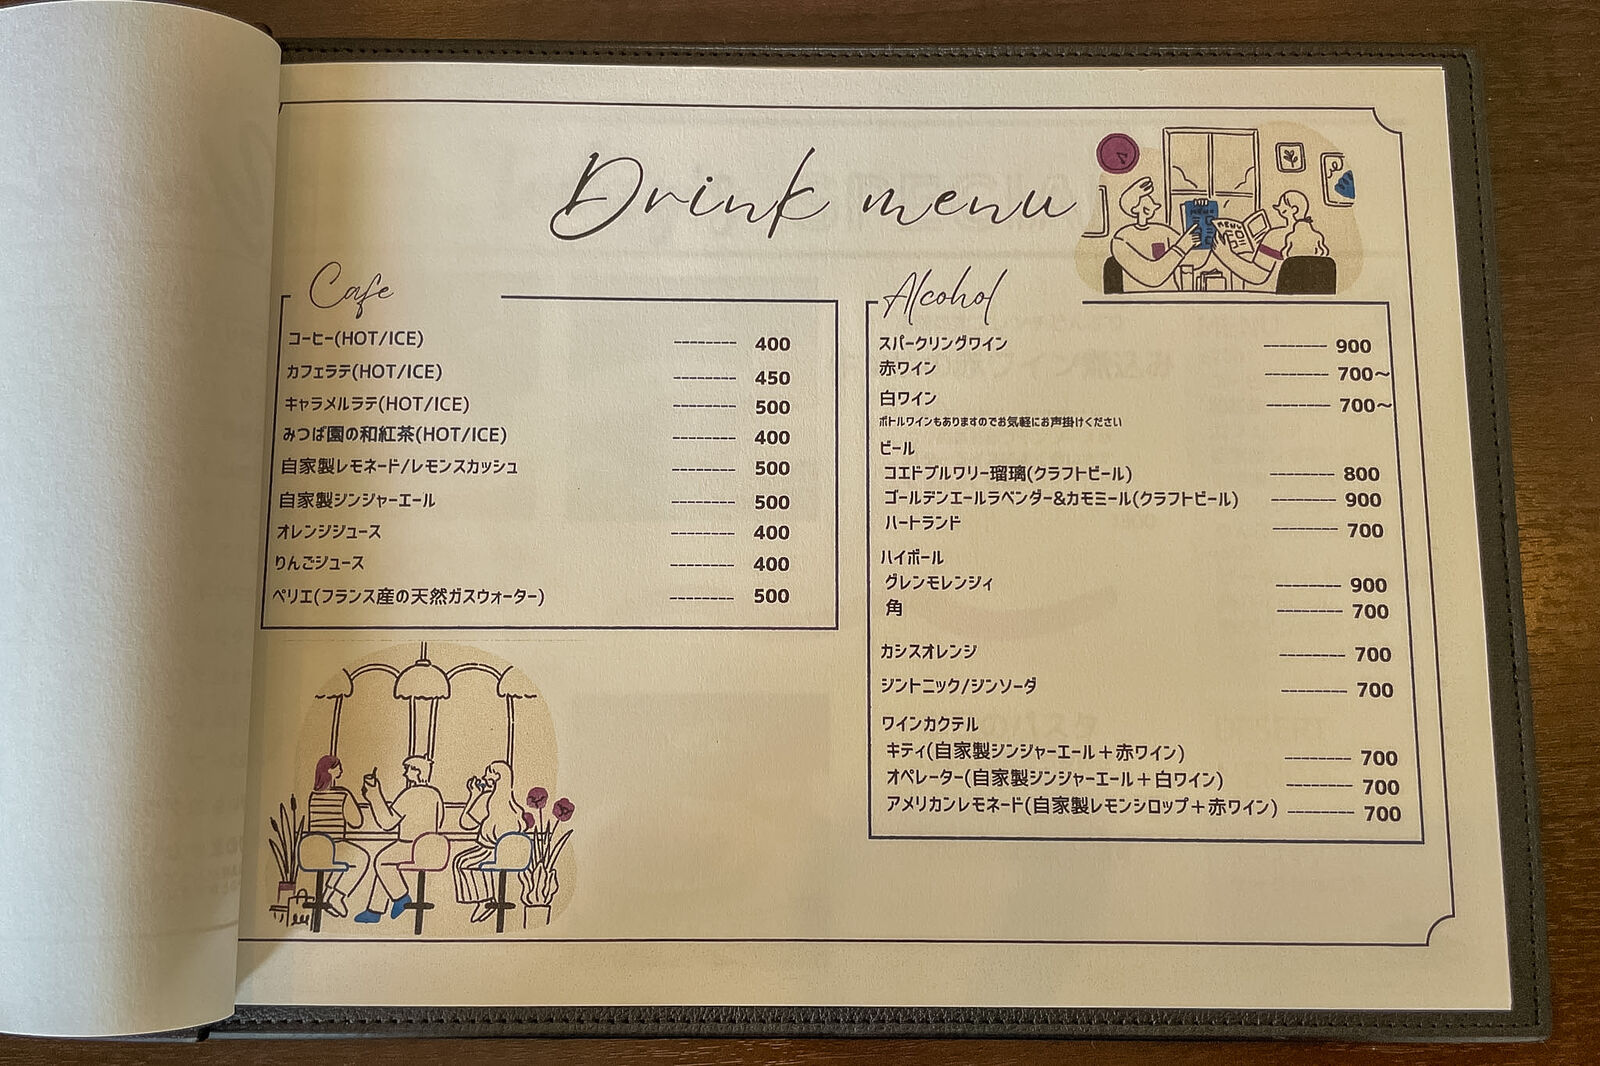 Drink menu
Cafe
コーヒー(HOT/ICE) -------- 400
カフェラテ(HOT/ICE) -------- 450
キャラメルラテ(HOT/ICE) -------- 500
みつば園の和紅茶(HOT/ICE) -------- 400
自家製レモネード/レモンスカッシュ -------- 500
自家製ジンジャーエール -------- 500
オレンジジュース -------- 400
りんごジュース -------- 400
ペリエ(フランス産の天然ガスウォーター) -------- 500
Alcohol
スパークリングワイン -------- 900
赤ワイン -------- 700~
白ワイン -------- 700~
ボトルワインもありますのでお気軽にお声掛けください
ビール
コエドブルワリー瑠璃(クラフトビール) -------- 800
ゴールデンエールラベンダー&カモミール(クラフトビール) -------- 900
ハートランド -------- 700
ハイボール
グレンモレンジィ -------- 900
角 -------- 700
カシスオレンジ -------- 700
ジントニック/ジンソーダ -------- 700
ワインカクテル
キティ(自家製ジンジャーエール＋赤ワイン) -------- 700
オペレーター(自家製ジンジャーエール＋白ワイン) -------- 700
アメリカンレモネード(自家製レモンシロップ＋赤ワイン) -------- 700
MENU
MENU